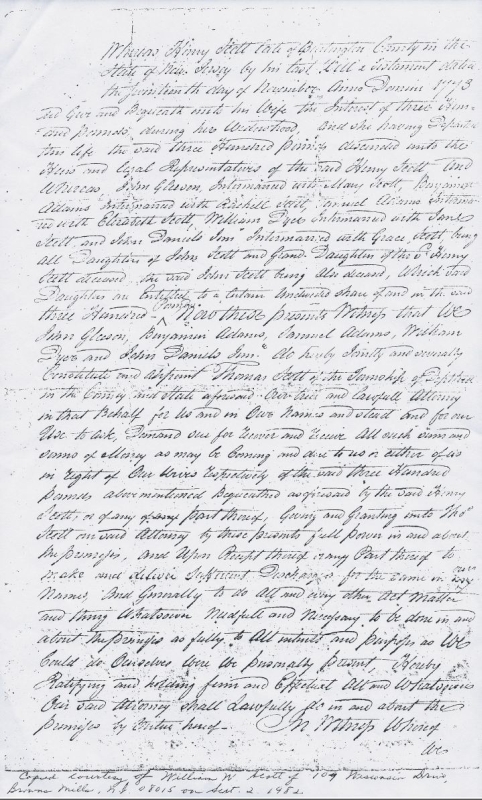 Whereas Henry Scott late of Burlington County in the
State of New Jersey by his last Will & testament dated
the fourteenth day of November Anno Domini 1773
did Give and Bequeath unto his Wife the Interest of three Hundred
and pounds, during her Widowhood, and she having Departed
this life the said three Hundred pounds descended unto the
Heirs and legal Representatives of the said Henry Scott And
Whereas, John Gleson, Intermarried with Mary Scott, Benjamin
Adams Intermarried with Rachell Scott, Samuel Adams Interma-
ried with Elizabeth Scott, William Dyer Intermarried with Jane
Scott, and John Daniels Junr Intermarried with Grace Scott being
all Daughters of John Scott and Grand-Daughters of the sd Henry
Scott deceased, the said John Scott being also deceased, Which said
Daughters are Entitled to a Certain Undivided share of and in the said
three Hundred Pounds, Now these presents Witness that We
John Gleson, Benjamin Adams, Samuel Adams, William
Dyer and John Daniels Junr do hereby Jointly and severally
Constitute and appoint Thomas Scott of the Township of
in the County and State aforesaid Our true and lawfull Attorney
in that Behalf for Us and in Our Names and stead and for our
Use to ask, Demand sue for Recover and Receive All such sum and
sums of Money as may be Coming and due to us or either of us
in right of Our Wives Respectively of the said three Hundred
pounds above mentioned Bequeathed as aforesaid by the said Henry
Scott, or of any part thereof, Giving and Granting unto Thos
Scott our said Attorney by these presents full power in and about
the premises, and Upon Receipt thereof or any Part thereof to
make and deliver Sufficient Discharges for the same in our
Names, And Generally to do All and every other Act Matter
and thing Whatsoever Needfull and Necessary to be done in and
about the premises as fully to All intents and purposes as We
Could do Ourselves were We personally present, Hereby
Ratifying and holding firm and Effectual All and Whatsoever
Our said Attorney shall Lawfully do in and about the
premises by Virtue hereof In Witness Whereof
We
Copied courtesy of William W. Scott of 109 Wisconsin Drive
Browns Mills, N.J. 08015 on Sept. 2, 1982.